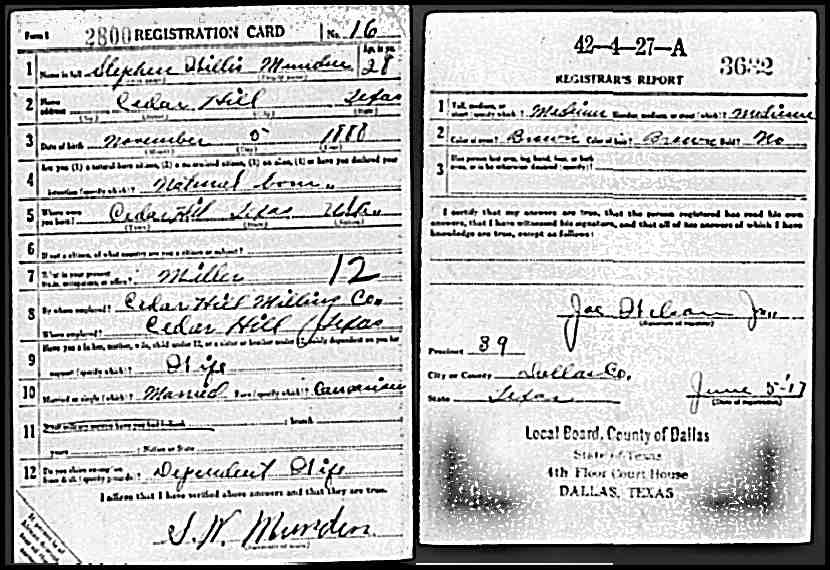 Form 1 2800 REGISTRATION CARD No. 16
1 Name in full Stephen Willis Munden Age, in yrs. 28
2 Home address Cedar Hill Texas
3 Date of birth November 5 1888
4 Are you (1) a natural born citizen, (2) a naturalized citizen, (3) an alien, (4) or have you declared your
intention (specify which)? Natural born
5 Where were you born? Cedar Hill Texas USA
6 If not a citizen, of what country are you a citizen or subject?
7 What is your present trade, occupation, or office? Miller 12
8 By whom employed? Cedar Hill Milling Co.
Where employed? Cedar Hill Texas
9 Have you a father, mother, wife, child under 12, or a sister or brother under 12, solely dependent on you for
support (specify which)? Wife
10 Married or single (which)? Married Race (specify which)? Caucasian
11 What military service have you had? Rank branch
years Nation or State
12 Do you claim exemption from draft (specify grounds)? Dependent Wife
I affirm that I have verified above answers and that they are true.
S. W. Munden
42—4—27—A
3682
REGISTRAR'S REPORT
1 Tall, medium, or short (specify which)? Medium Slender, medium, or stout (which)? Medium
2 Color of eyes? Brown Color of hair? Brown Bald? No
3 Has person lost arm, leg, hand, foot, or both
eyes, or is he otherwise disabled (specify)?
I certify that my answers are true, that the person registered has read his own
answers, that I have witnessed his signature, and that all of his answers of which I have
knowledge are true, except as follows:
Joe Wilson Jr.
(Signature of registrar)
Precinct 39
City or County Dallas Co.
State Texas June 5-17
(Date of registration)
Local Board, County of Dallas
State of Texas
4th Floor Court House
DALLAS, TEXAS